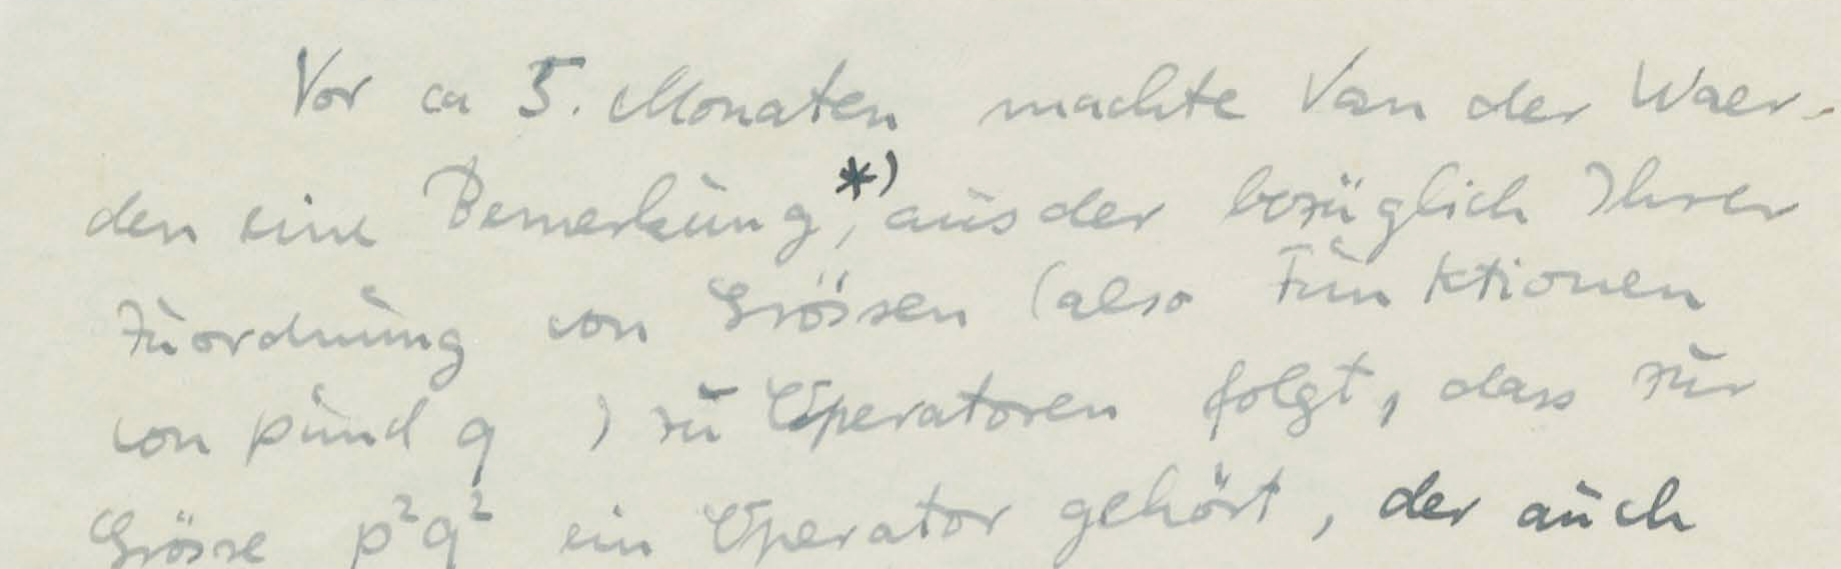 Vor ca 5. Monaten machte Van der Waer-
den eine Bemerkung*), aus der bezüglich Ihrer
Zuordnung von Grössen (also Funktionen
von p und q ) zu Operatoren folgt, dass zur
Grösse p²q² ein Operator gehört, der auch